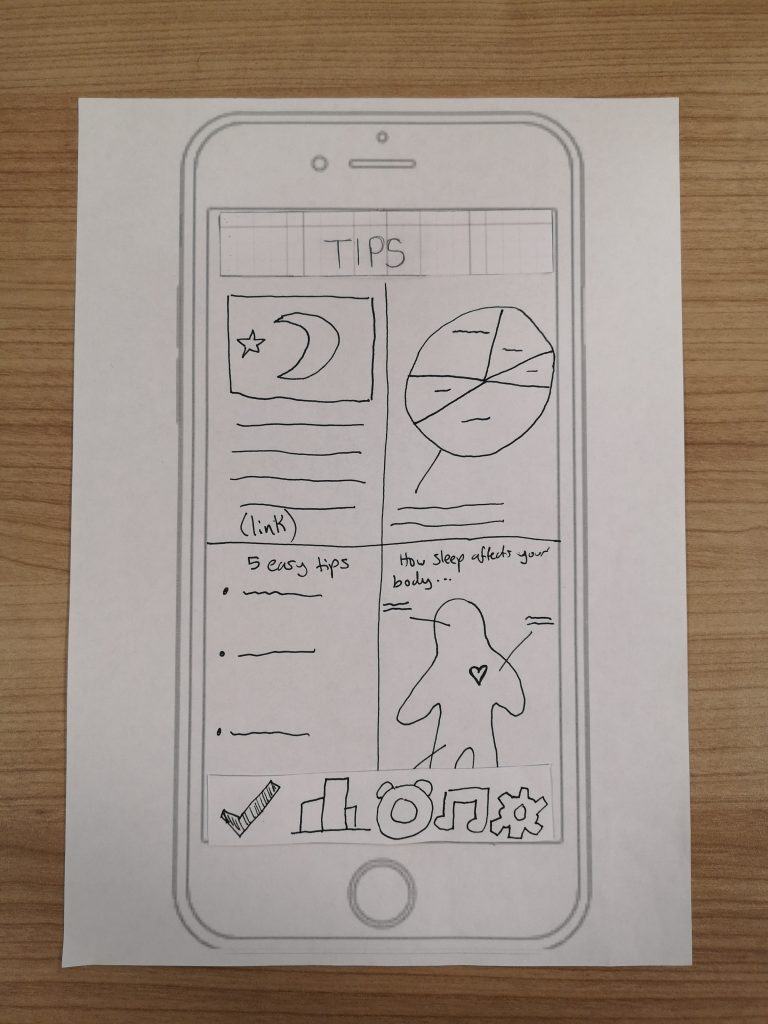 TIPS
(link)
5 easy tips
How sleep affects your
body...